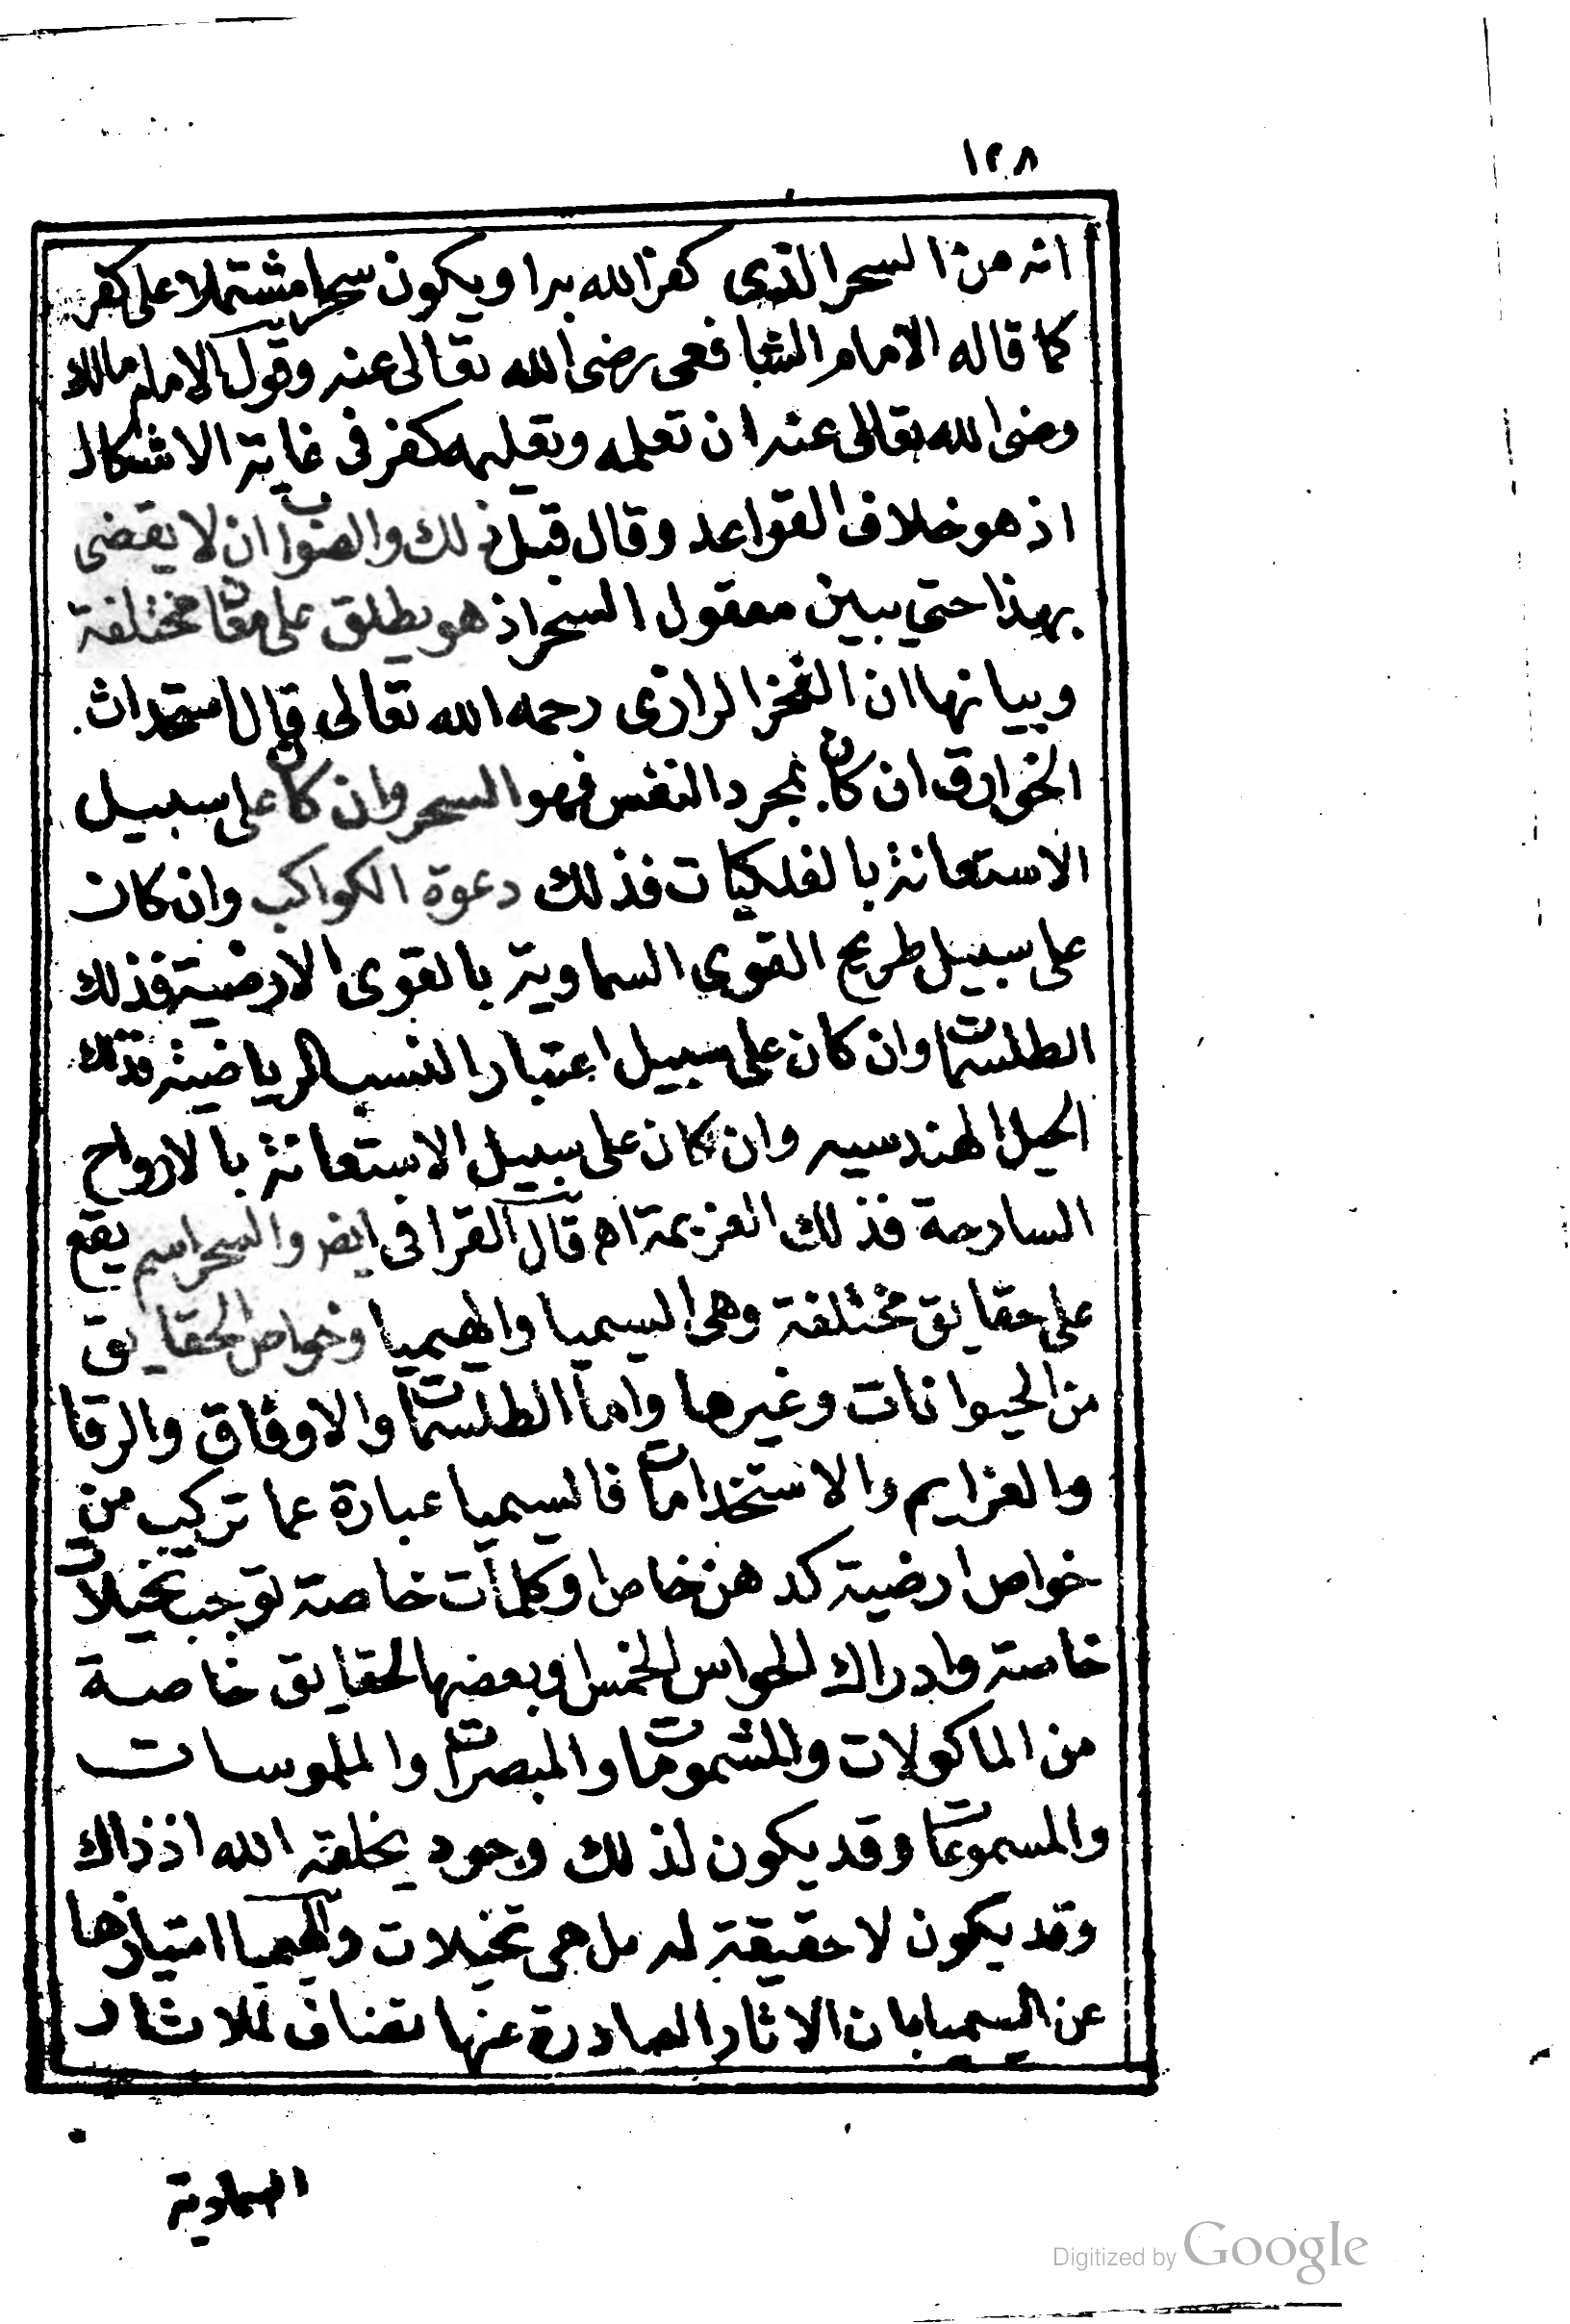 ١٢٨
انه من السحر الذى كفر الله به او يكون سحرا مشتملا على كفر
كما قاله الامام الشافعى رضى الله تعالى عنه وقول الامام مالك
رضى الله تعالى عنه ان تعلمه وتعليمه كفر فى غاية الاشكال
اذ هو خلاف القواعد وقال قبل ذلك والصواب ان لا يقضى
بهذا حتى يبين معقول السحر اذ هو يطلق على معان مختلفة
وبيانها ان الفخر الرازى رحمه الله تعالى قال استحداث
الخوارق ان كان بمجرد النفس فهو السحر وان كان على سبيل
الاستعانة بالفلكيات فذلك دعوة الكواكب وان كان
على سبيل طريح القوى السماوية بالقوى الارضية فذلك
الطلسمات وان كان على سبيل اعتبار النسب الرياضية فذلك
الحيل الهندسيه وان كان على سبيل الاستعانة بالارواح
السادجة فذلك العزيمة اه قال القرافى ايضا والسحر اسم يقع
على حقايق مختلفة وهى السيميا والهيميا وخواص الحقايق
من الحيوانات وغيرها واما الطلسمات والاوفاق والرقا
والعزايم والاستخدامات فالسيميا عبارة عما تركيب من
خواص ارضية كدهن خاص او كلمات خاصة توجب تخيلات
خاصة وادراك الحواس الخمس او بعضها لحقايق خاصة
من الماكولات والمشمومات والمبصرات والملموسات
والمسموعات وقد يكون لذلك وجود يخلقه الله اذ ذاك
وقد يكون لا حقيقة له بل هى تخيلات والهيميا امتيازها
عن السيميا بان الاثار الصادرة عنها تضاف للاثار
السماوية
Digitized by Google